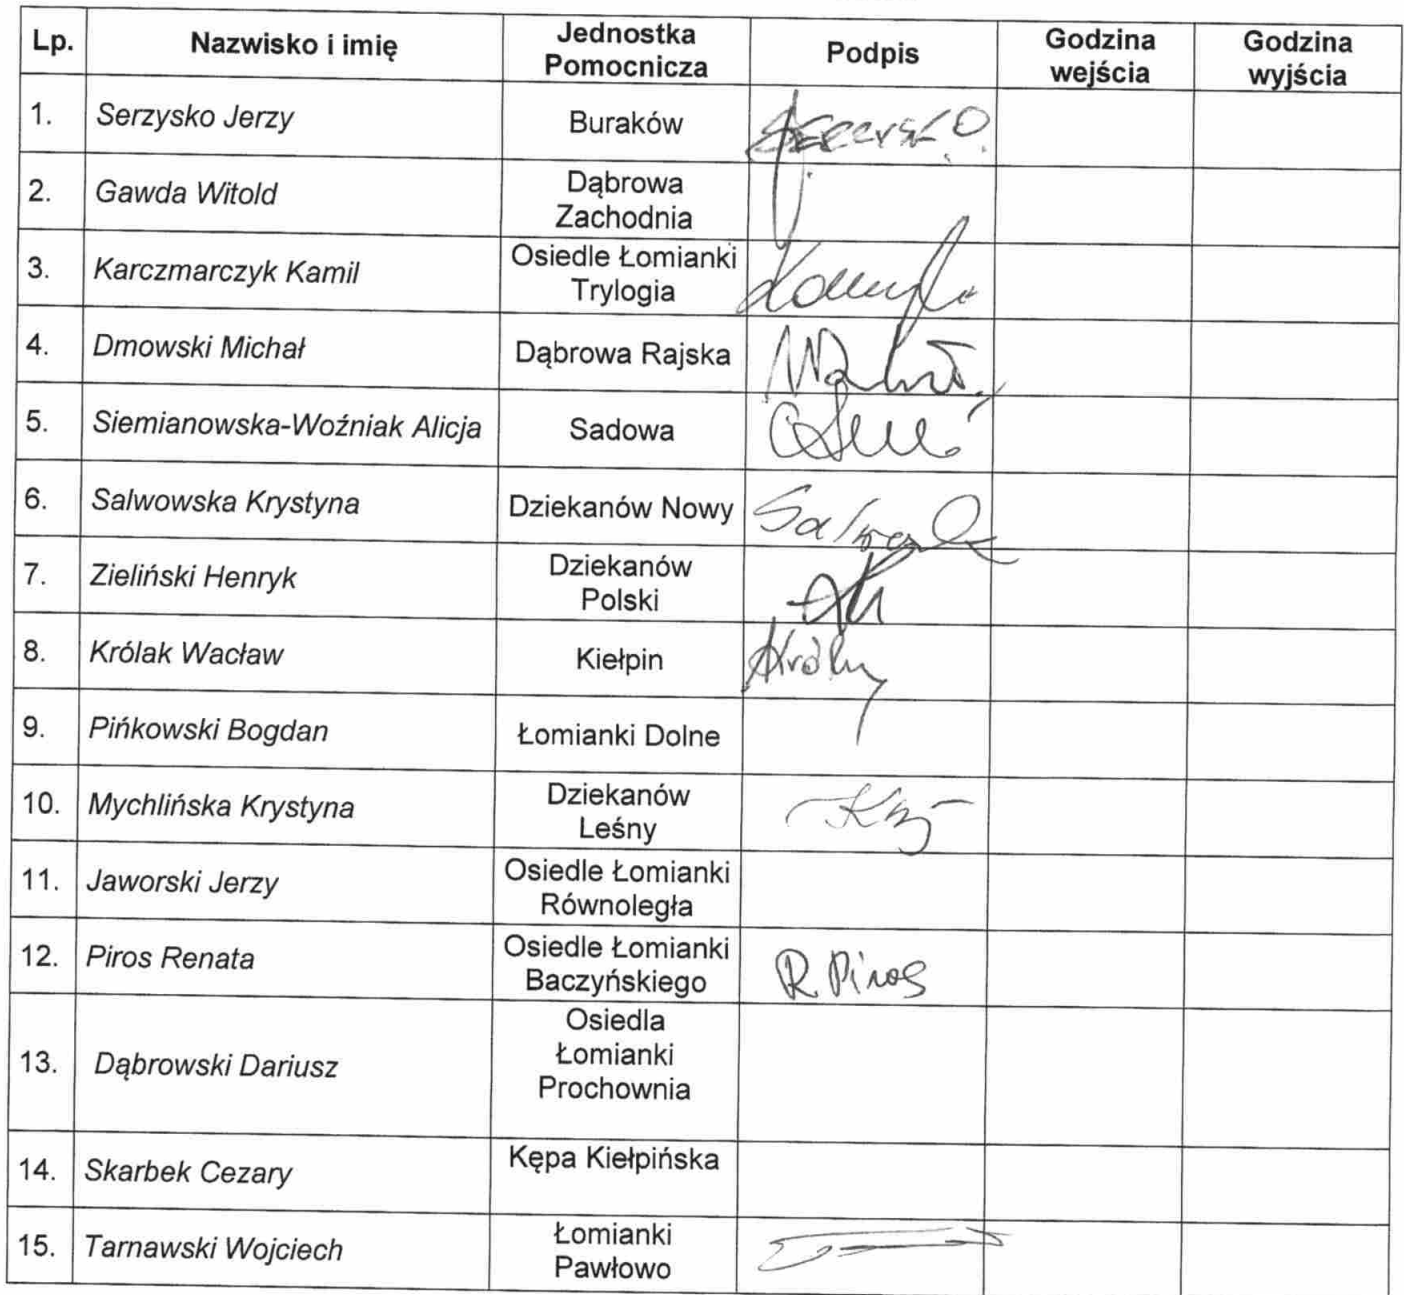 Lp. Nazwisko i imię Jednostka Pomocnicza Podpis Godzina wejścia Godzina wyjścia
1. Serzysko Jerzy Buraków
2. Gawda Witold Dąbrowa Zachodnia
3. Karczmarczyk Kamil Osiedle Łomianki Trylogia
4. Dmowski Michał Dąbrowa Rajska
5. Siemianowska-Woźniak Alicja Sadowa
6. Salwowska Krystyna Dziekanów Nowy
7. Zieliński Henryk Dziekanów Polski
8. Królak Wacław Kiełpin
9. Pińkowski Bogdan Łomianki Dolne
10. Mychlińska Krystyna Dziekanów Leśny
11. Jaworski Jerzy Osiedle Łomianki Równoległa
12. Piros Renata Osiedle Łomianki Baczyńskiego R. Piros
13. Dąbrowski Dariusz Osiedla Łomianki Prochownia
14. Skarbek Cezary Kępa Kiełpińska
15. Tarnawski Wojciech Łomianki Pawłowo